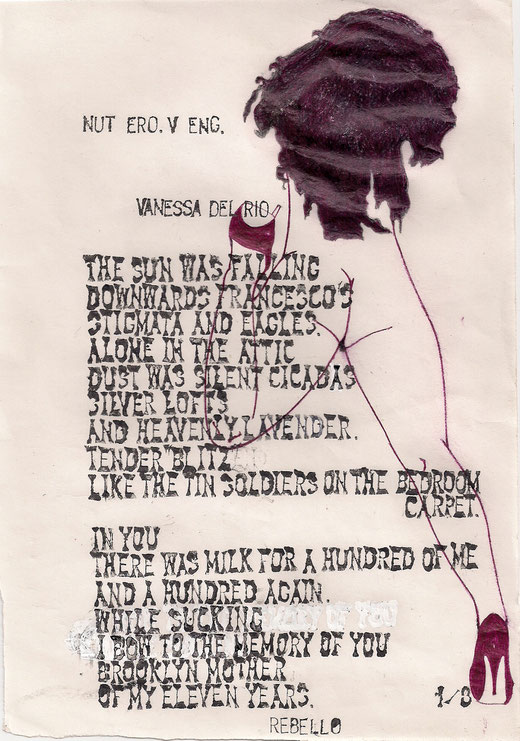 NUT ERO. V ENG.
VANESSA DEL RIO
THE SUN WAS FALLING
DOWNWARDS FRANCESCO'S
STIGMATA AND EAGLES.
ALONE IN THE ATTIC
DUST WAS SILENT CICADAS
SILVER LOFTS
AND HEAVENLY LAVENDER.
TENDER BLITZ
LIKE THE TIN SOLDIERS ON THE BEDROOM
CARPET.
IN YOU
THERE WAS MILK FOR A HUNDRED OF ME
AND A HUNDRED AGAIN.
WHILE SUCKING
I BOW TO THE MEMORY OF YOU
BROOKLYN MOTHER
OF MY ELEVEN YEARS.
1/8
REBELLO